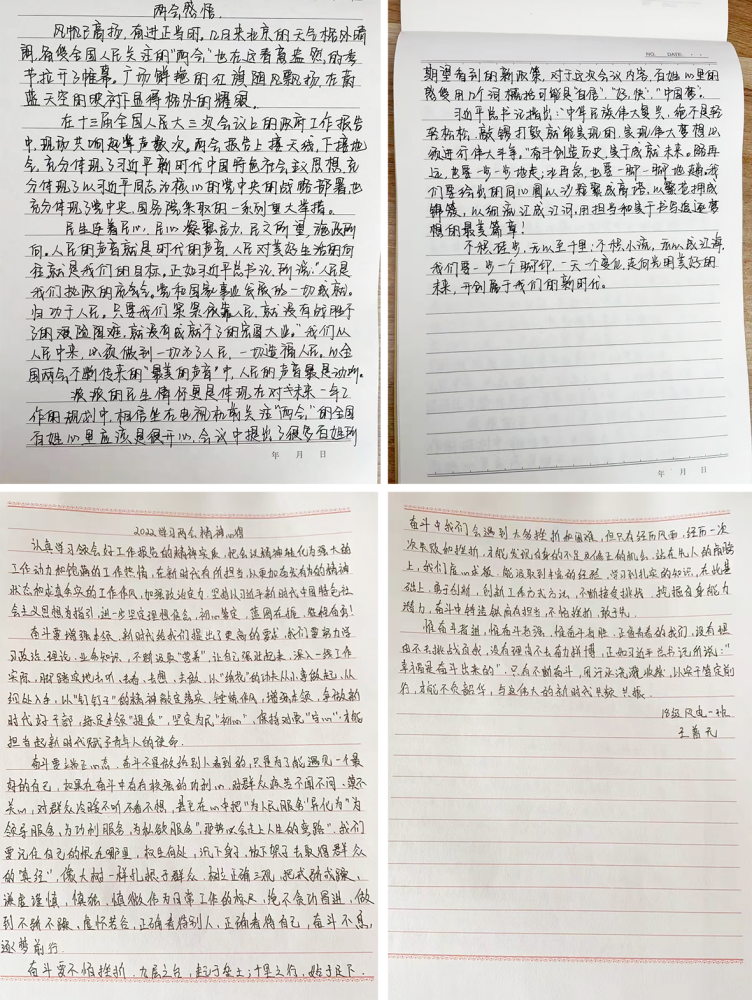 两会感悟
风帆已高扬,奋进正当时。几日来北京的天气格外晴
朗,备受全国人民关注的"两会"也在这春意盎然的季
节拉开了帷幕。广场鲜艳的红旗随风飘扬,在蔚
蓝天空的映衬下显得格外的耀眼。
在十三届全国人民大三次会议上的政府工作报告
中,现场共响起掌声数次。两会报告上接天线,下接地
气,充分体现了习近平新时代中国特色社会主义思想,充
分体现了以习近平同志为核心的党中央的战略部署,也
充分体现了党中央、国务院采取的一系列重大举措。
民生连着民心,民心凝聚民力,民之所望,施政所
向。人民的声音就是时代的声音,人民对美好生活的向
往就是我们的目标。正如习近平总书记所说:"人民是
我们执政的底气。党和国家事业发展的一切成就,
归功于人民。只要我们紧紧依靠人民,就没有战胜不
了的艰险困难,就没有成就不了的宏图大业。"我们从
人民中来,必须做到一切为了人民,一切造福人民。从全
国两会不断传来的"最美的声音"中,人民的声音最是动听。
浓浓的民生情怀更是体现在对未来一年工
作的规划中,相信坐在电视机前关注"两会"的全国
百姓心里应该是很开心,会议中提出了很多百姓所
年 月 日
NO. DATE
期望看到的新政策,对于这次会议内容,百姓心里的
感受用几个词概括可能是"自信"、"好、快"、"中国梦"。
习近平总书记指出:"中华民族伟大复兴,绝不是轻
轻松松、敲锣打鼓就能实现的,实现伟大梦想必
须进行伟大斗争。"奋斗创造历史,实干成就未来。路再
远,也要一步一步地走,水再急,也要一脚一脚地趟,我
们要绘出的同心圆以沙聚成高塔,以繁花拥成
锦簇,以细流汇成江河,用担当和实干书写追逐梦
想的最美篇章!
不积跬步,无以至千里;不积小流,无以成江海,
我们要一步一个脚印,一天一个变化,走向光明美好的
未来,开创属于我们的新时代。
年 月 日
2022学习两会精神心得
认真学习领会好工作报告的精神实质,把会议精神转化为强大的
工作动力和饱满的工作热情,在新时代有所担当,以更加奋发有为的精神
状态和求真务实的工作作风,加强政治定力,坚持以习近平新时代中国特色社
会主义思想为指引,进一步坚定理想信念,初心笃定,蓝图在握,砥砺奋勇!
奋斗要增强本领。新时代给我们提出了更高的要求,我们要努力学
习政治、理论、业务知识,不断汲取"营养",让自己强壮起来,深入一线工作
实际,脚踏实地去听、去看、去想、去做,以"绣花"的功夫从小事做起,从
细处入手,以"钉钉子"的精神敲定落实,锤炼作风,增强本领,争做新
时代好干部,练足本领"提气",坚定为民"初心",保持对党"安心",才能
担当起新时代赋予青年人的使命。
奋斗要端正心态。奋斗不是做给别人看到的,只是为了能遇见一个最
好的自己,如果在奋斗中存有极强的功利心,对群众疾苦不闻不问、漠不
关心,对群众冷暖不听不看不想,甚至在心中把"为人民服务"异化为"为
领导服务、为功利服务、为私欲服务",那势必会走上人生的弯路",我们
要记住自己的根在哪里,枝生何处,沉下身子,放下架子去取得群众
的"真经",像大树一样扎根于群众,树立正确三观,把戒骄戒躁、
谦虚谨慎、慎独、慎微作为日常工作的标尺,绝不贪功冒进,做
到不骄不躁、虚怀若谷,正确看待别人,正确看待自己,奋斗不息,
逐梦前行。
奋斗要不怕挫折。九层之台,起于垒土;千里之行,始于足下。
奋斗中我们会遇到大多挫折和困难,但只有经历风雨,经历一次
次失败和挫折,才能发现自身的不足及修正的机会,站在先人的肩膀
上,我们虚心求教,能汲取到丰富的经验,学习到扎实的知识,在此基
础上,勇于创新,创新工作方式方法,不断接受挑战,挖掘自身能力
潜力,奋斗中铸造纵向有担当,不怕挫折,敢于先。
惟奋斗者进,惟奋斗者强,惟奋斗者胜。正值青春的我们,没有理
由不去挑战自我,没有理由不去奋力拼搏,正如习近平总书记所说:"
幸福是奋斗出来的",只有不断奋斗,用汗水浇灌收获,以实干笃定前
行,才能不负韶华,与这伟大的新时代共频共振。
18级风电一班